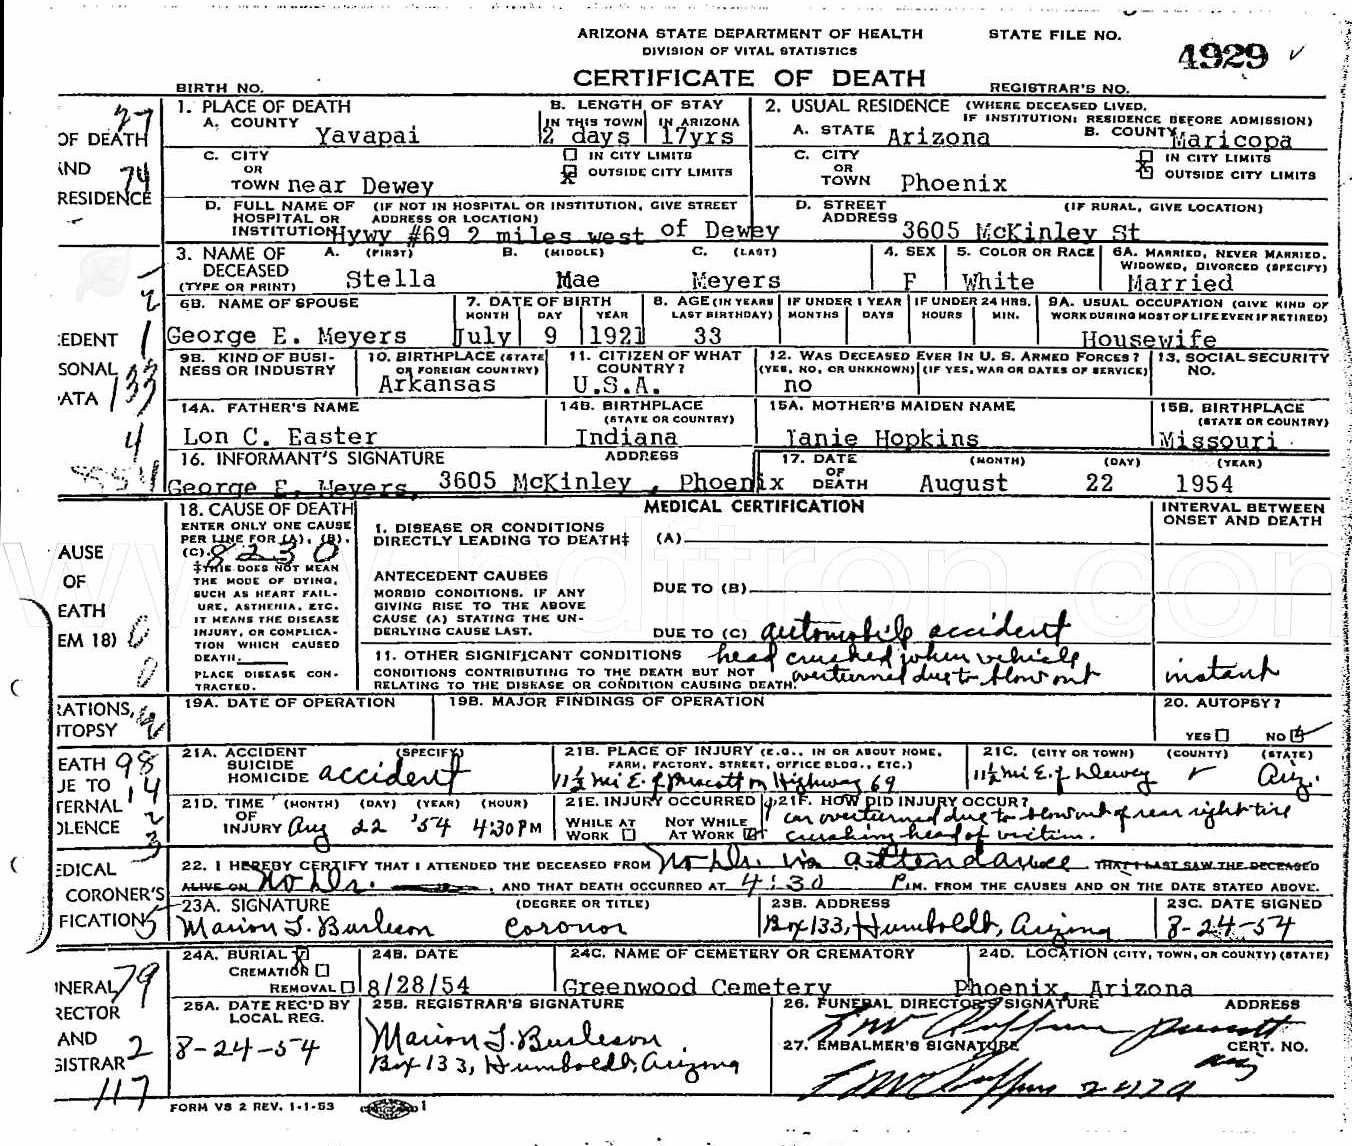 ARIZONA STATE DEPARTMENT OF HEALTH STATE FILE NO.
DIVISION OF VITAL STATISTICS 4929
CERTIFICATE OF DEATH
BIRTH NO. REGISTRAR'S NO.
1. PLACE OF DEATH B. LENGTH OF STAY 2. USUAL RESIDENCE (WHERE DECEASED LIVED.
IF INSTITUTION: RESIDENCE BEFORE ADMISSION)
A. COUNTY Yavapai IN THIS TOWN 2 days IN ARIZONA 17yrs A. STATE Arizona B. COUNTY Maricopa
C. CITY OR TOWN near Dewey IN CITY LIMITS OUTSIDE CITY LIMITS C. CITY OR TOWN Phoenix IN CITY LIMITS OUTSIDE CITY LIMITS
D. FULL NAME OF HOSPITAL OR INSTITUTION (IF NOT IN HOSPITAL OR INSTITUTION, GIVE STREET ADDRESS OR LOCATION) Hywy #69 2 miles west of Dewey D. STREET ADDRESS (IF RURAL, GIVE LOCATION) 3605 McKinley St
3. NAME OF DECEASED (TYPE OR PRINT) A. (FIRST) Stella B. (MIDDLE) Mae C. (LAST) Meyers 4. SEX F 5. COLOR OR RACE White 6A. MARRIED, NEVER MARRIED, WIDOWED, DIVORCED (SPECIFY) Married
6B. NAME OF SPOUSE George E. Meyers 7. DATE OF BIRTH MONTH July DAY 9 YEAR 1921 8. AGE (IN YEARS LAST BIRTHDAY) 33 IF UNDER 1 YEAR MONTHS DAYS IF UNDER 24 HRS. HOURS MIN. 9A. USUAL OCCUPATION (GIVE KIND OF WORK DURING MOST OF LIFE EVEN IF RETIRED) Housewife
9B. KIND OF BUSINESS OR INDUSTRY 10. BIRTHPLACE (STATE OR FOREIGN COUNTRY) Arkansas 11. CITIZEN OF WHAT COUNTRY? U.S.A. 12. WAS DECEASED EVER IN U. S. ARMED FORCES? (YES, NO, OR UNKNOWN) (IF YES, WAR OR DATES OF SERVICE) no 13. SOCIAL SECURITY NO.
14A. FATHER'S NAME Lon C. Easter 14B. BIRTHPLACE (STATE OR COUNTRY) Indiana 15A. MOTHER'S MAIDEN NAME Janie Hopkins 15B. BIRTHPLACE (STATE OR COUNTRY) Missouri
16. INFORMANT'S SIGNATURE ADDRESS George E. Meyers, 3605 McKinley , Phoenix 17. DATE OF DEATH (MONTH) August (DAY) 22 (YEAR) 1954
18. CAUSE OF DEATH MEDICAL CERTIFICATION INTERVAL BETWEEN ONSET AND DEATH
ENTER ONLY ONE CAUSE PER LINE FOR (A), (B), (C). 8230
‡THIS DOES NOT MEAN THE MODE OF DYING, SUCH AS HEART FAILURE, ASTHENIA, ETC. IT MEANS THE DISEASE INJURY, OR COMPLICATION WHICH CAUSED DEATH.
PLACE DISEASE CONTRACTED.
I. DISEASE OR CONDITIONS DIRECTLY LEADING TO DEATH‡ (A)
ANTECEDENT CAUSES MORBID CONDITIONS, IF ANY GIVING RISE TO THE ABOVE CAUSE (A) STATING THE UNDERLYING CAUSE LAST. DUE TO (B)
DUE TO (C) automobile accident
11. OTHER SIGNIFICANT CONDITIONS CONDITIONS CONTRIBUTING TO THE DEATH BUT NOT RELATING TO THE DISEASE OR CONDITION CAUSING DEATH. head crushed when vehicle overturned due to blow out instant
19A. DATE OF OPERATION 19B. MAJOR FINDINGS OF OPERATION 20. AUTOPSY? YES NO
21A. ACCIDENT SUICIDE HOMICIDE (SPECIFY) accident 21B. PLACE OF INJURY (E.G., IN OR ABOUT HOME, FARM, FACTORY, STREET, OFFICE BLDG., ETC.) 11½ mi E. of Prescott on Highway 69 21C. (CITY OR TOWN) (COUNTY) (STATE) 11½ mi E. of Dewey Ariz.
21D. TIME OF INJURY (MONTH) (DAY) (YEAR) (HOUR) Aug 22 '54 4:30 PM 21E. INJURY OCCURRED WHILE AT WORK NOT WHILE AT WORK 21F. HOW DID INJURY OCCUR? car overturned due to blow out of rear right tire crushing head of victim.
22. I HEREBY CERTIFY THAT I ATTENDED THE DECEASED FROM No Dr. in attendance THAT I LAST SAW THE DECEASED
ALIVE ON No Dr. , AND THAT DEATH OCCURRED AT 4:30 P.M. FROM THE CAUSES AND ON THE DATE STATED ABOVE.
23A. SIGNATURE (DEGREE OR TITLE) Marion L. Burleson Coronor 23B. ADDRESS Box 133, Humboldt, Arizona 23C. DATE SIGNED 8-24-54
24A. BURIAL CREMATION REMOVAL 24B. DATE 8/28/54 24C. NAME OF CEMETERY OR CREMATORY Greenwood Cemetery 24D. LOCATION (CITY, TOWN, OR COUNTY) (STATE) Phoenix, Arizona
25A. DATE REC'D BY LOCAL REG. 8-24-54 25B. REGISTRAR'S SIGNATURE Marion L. Burleson Box 133, Humboldt, Arizona 26. FUNERAL DIRECTOR'S SIGNATURE ADDRESS
27. EMBALMER'S SIGNATURE CERT. NO.
FORM VS 2 REV. 1-1-53